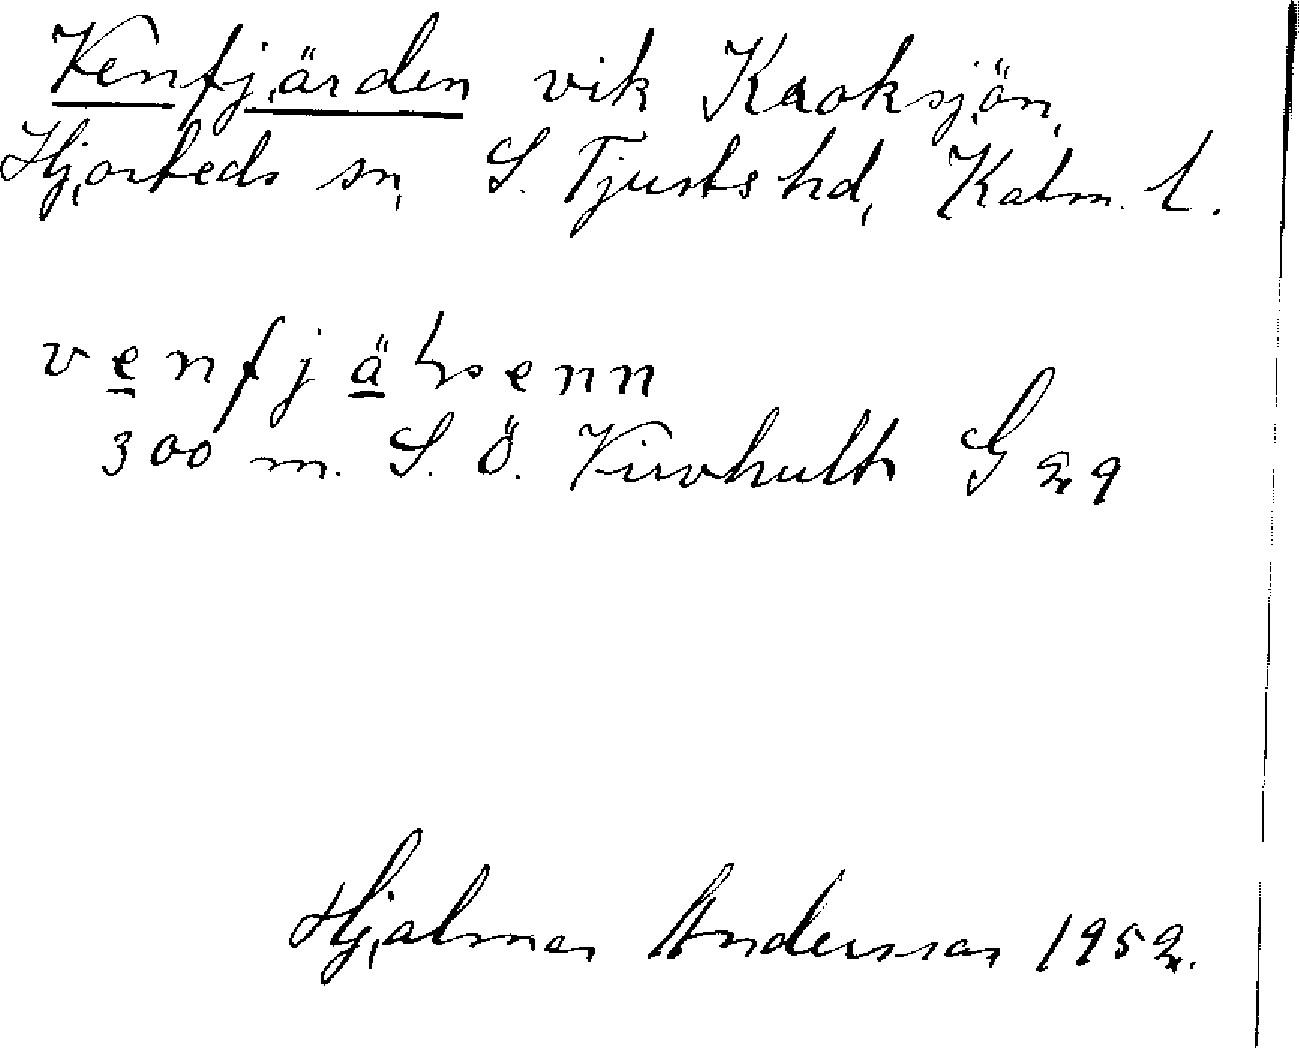 Venfjärden vik Kroksjön,
Hjorteds sn, S. Tjusts hd, Kalm. l.
venfjä enn
300 m. S. Ö. Virvhult G 29
Hjalmar Andersson 1952.